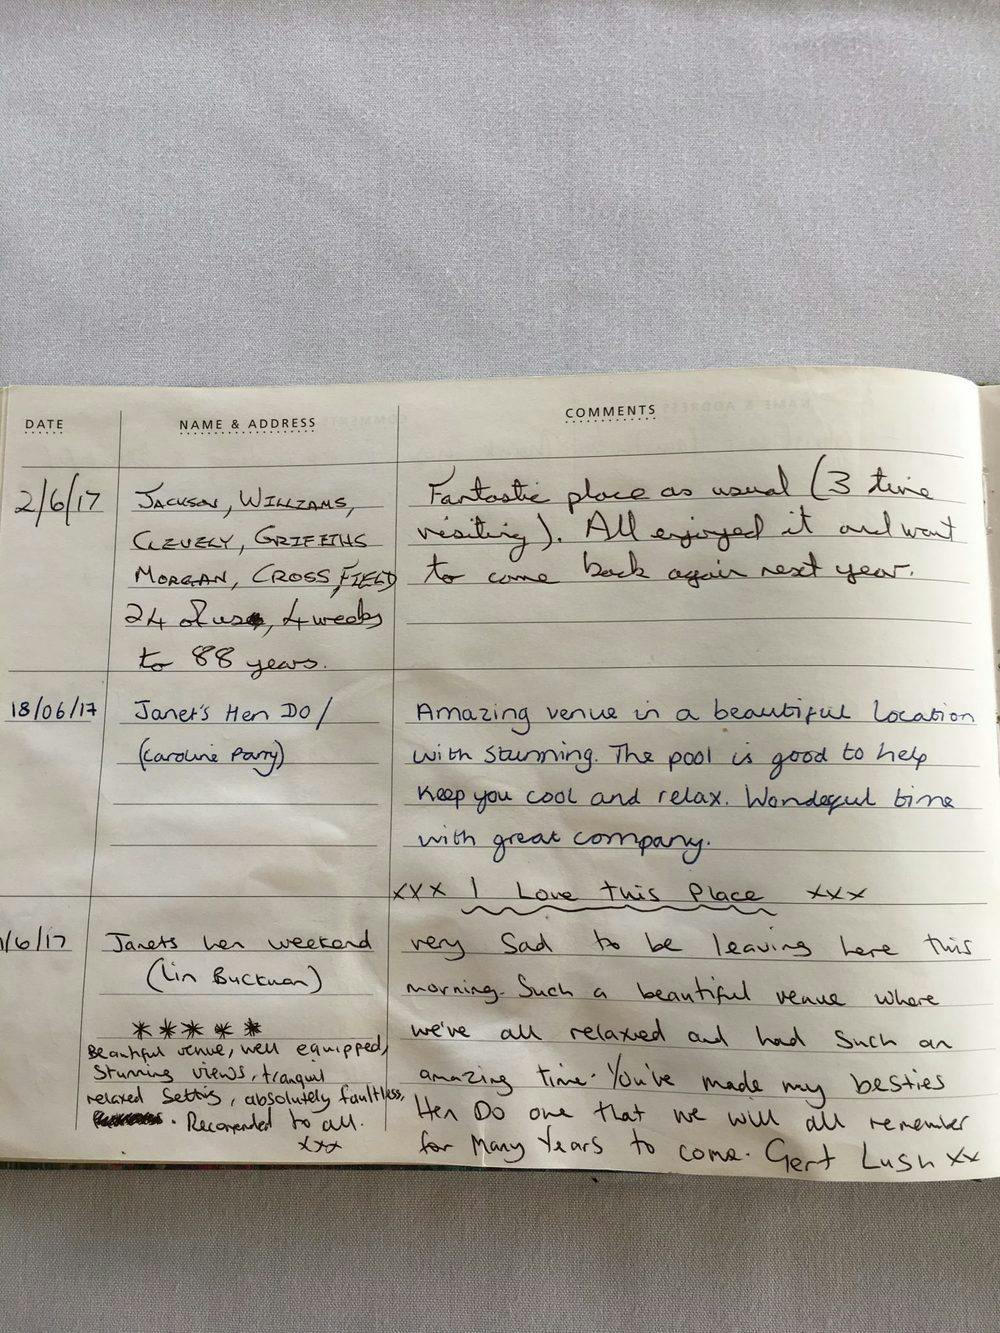 DATE NAME & ADDRESS COMMENTS
2/6/17 JACKSON, WILLIAMS, Fantastic place as usual (3 time
CLEVELY, GRIFFITHS visiting). All enjoyed it and want
MORGAN, CROSSFIELD to come back again next year.
24 of us, 4 weeks
to 88 years.
18/06/17 Janet's Hen DO / Amazing venue in a beautiful location
(Caroline Parry) with stunning. The pool is good to help
keep you cool and relax. Wonderful time
with great company.
xxx I Love this Place xxx
/6/17 Janets hen weekend very sad to be leaving here this
(Lin Buckman) morning. Such a beautiful venue where
***** we've all relaxed and had such an
Beautiful venue, well equipped, amazing time. You've made my besties
Stunning views, tranquil Hen Do one that we will all remember
relaxed setting, absolutely faultless, for Many Years to come. Gert Lush xx
. Recomended to all.
xxx